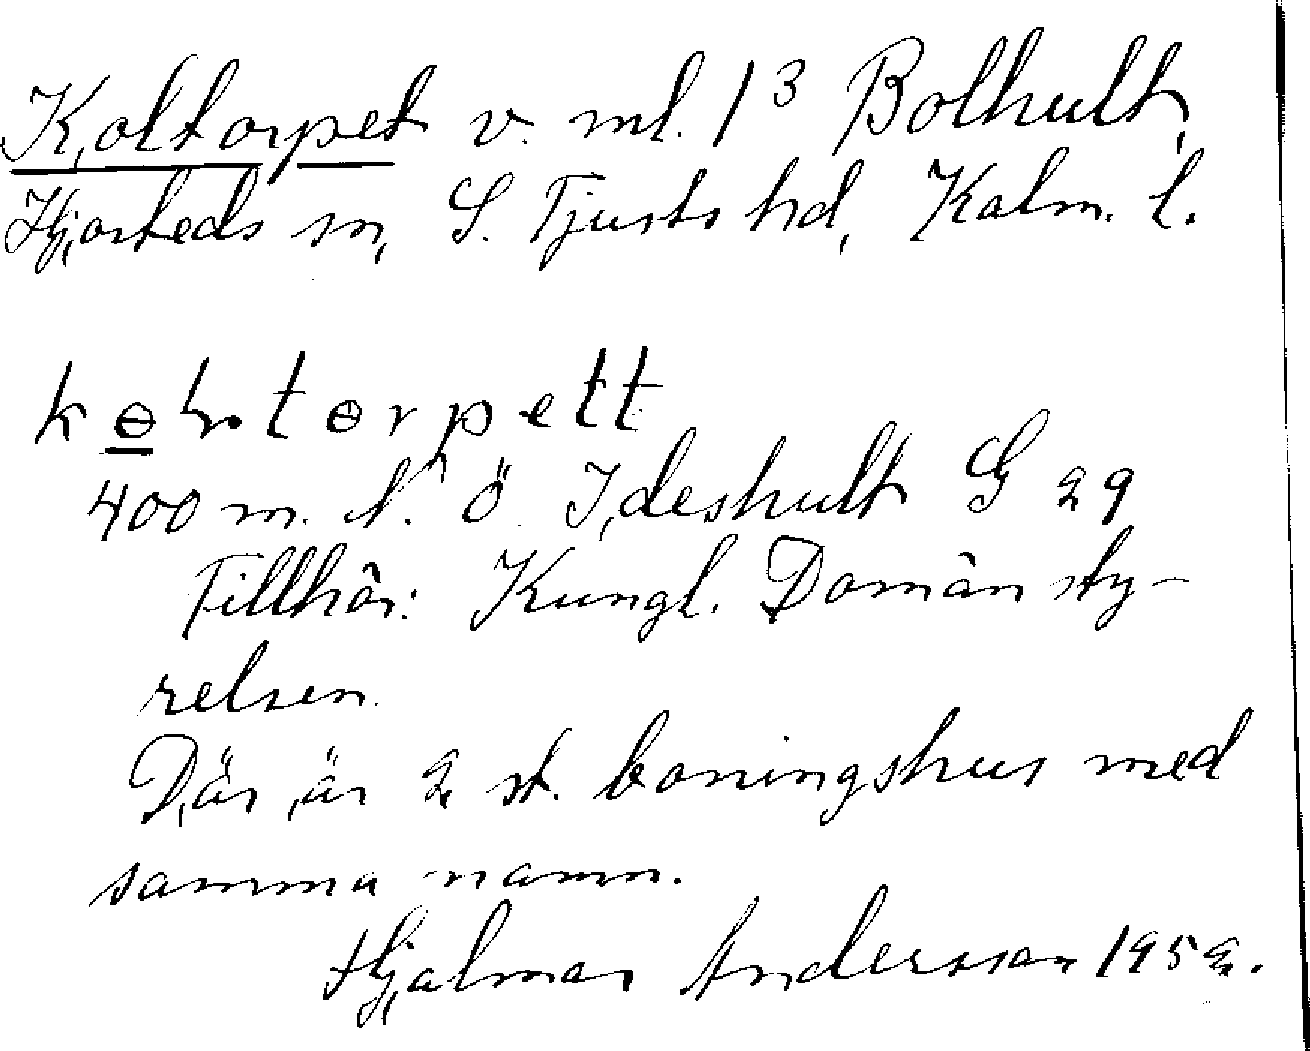 Koltorpet v. ml. 1³ Bolhult,
Hjorteds sn, S. Tjusts hd, Kalm. l.
kɵltɵrpett
400 m. N. Ö Ideshult G 29
Tillhör: Kungl. Domänsty-
relsen.
Där är 2 st. boningshus med
samma namn.
Hjalmar Andersson 1952.